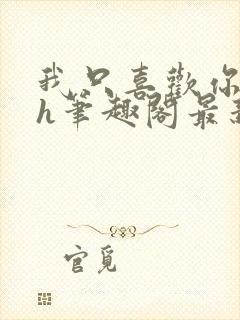 我只喜歡你
h筆趣閣最
官覓